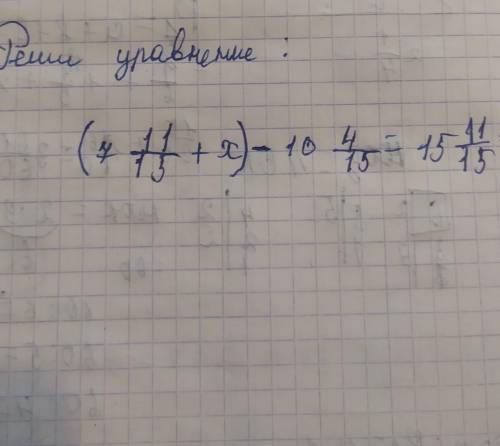 Реши уравнение:
(7 11/15 + x) - 10 4/15 = 15 11/15